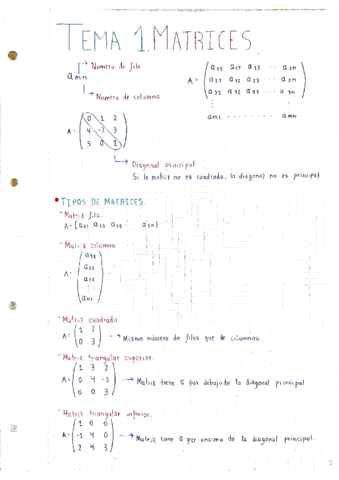 TEMA 1. MATRICES.
Número de fila
a mn
Número de columna
A = ( a11 a12 a13 ... a1n
a21 a22 a23 ... a2n
a31 a32 a33 ... a3n
am1 ......... amn )
A = ( 0 1 2
4 -2 3
5 0 1 )
Diagonal principal
Si la matriz no es cuadrada, la diagonal no es principal
• TIPOS DE MATRICES.
- Matriz fila.
A = (a11 a12 a13 ... a1n)
- Matriz columna
A = ( a11
a21
a31
⋮
am1 )
- Matriz cuadrada.
A = ( 1 2
0 3 ) → Mismo número de filas que de columnas
- Matriz triangular superior.
A = ( 1 3 2
0 4 -1
0 0 3 ) → Matriz tiene 0 por debajo de la diagonal principal
- Matriz triangular inferior.
A = ( 1 0 0
-1 4 0
2 4 3 ) → Matriz tiene 0 por encima de la diagonal principal.